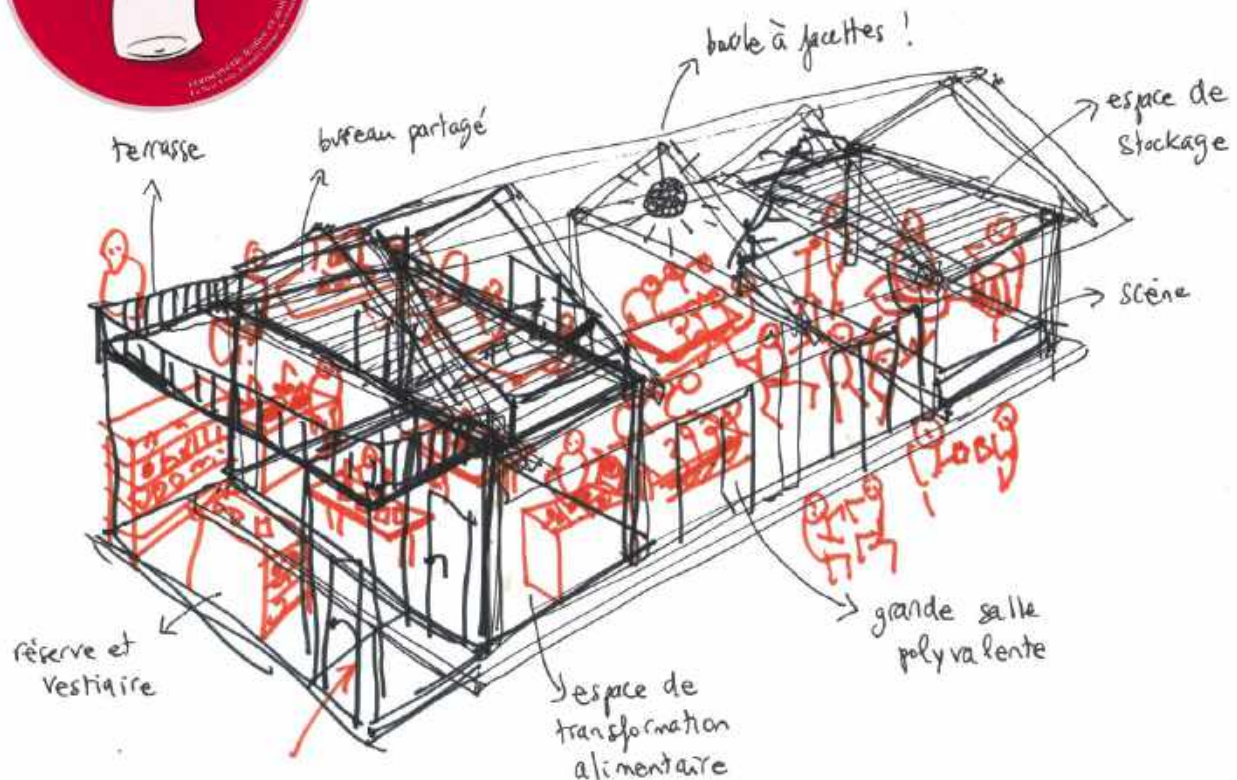 boule à facettes !
terrasse
bureau partagé
espace de
stockage
scène
grande salle
polyvalente
réserve et
vestiaire
espace de
transformation
alimentaire